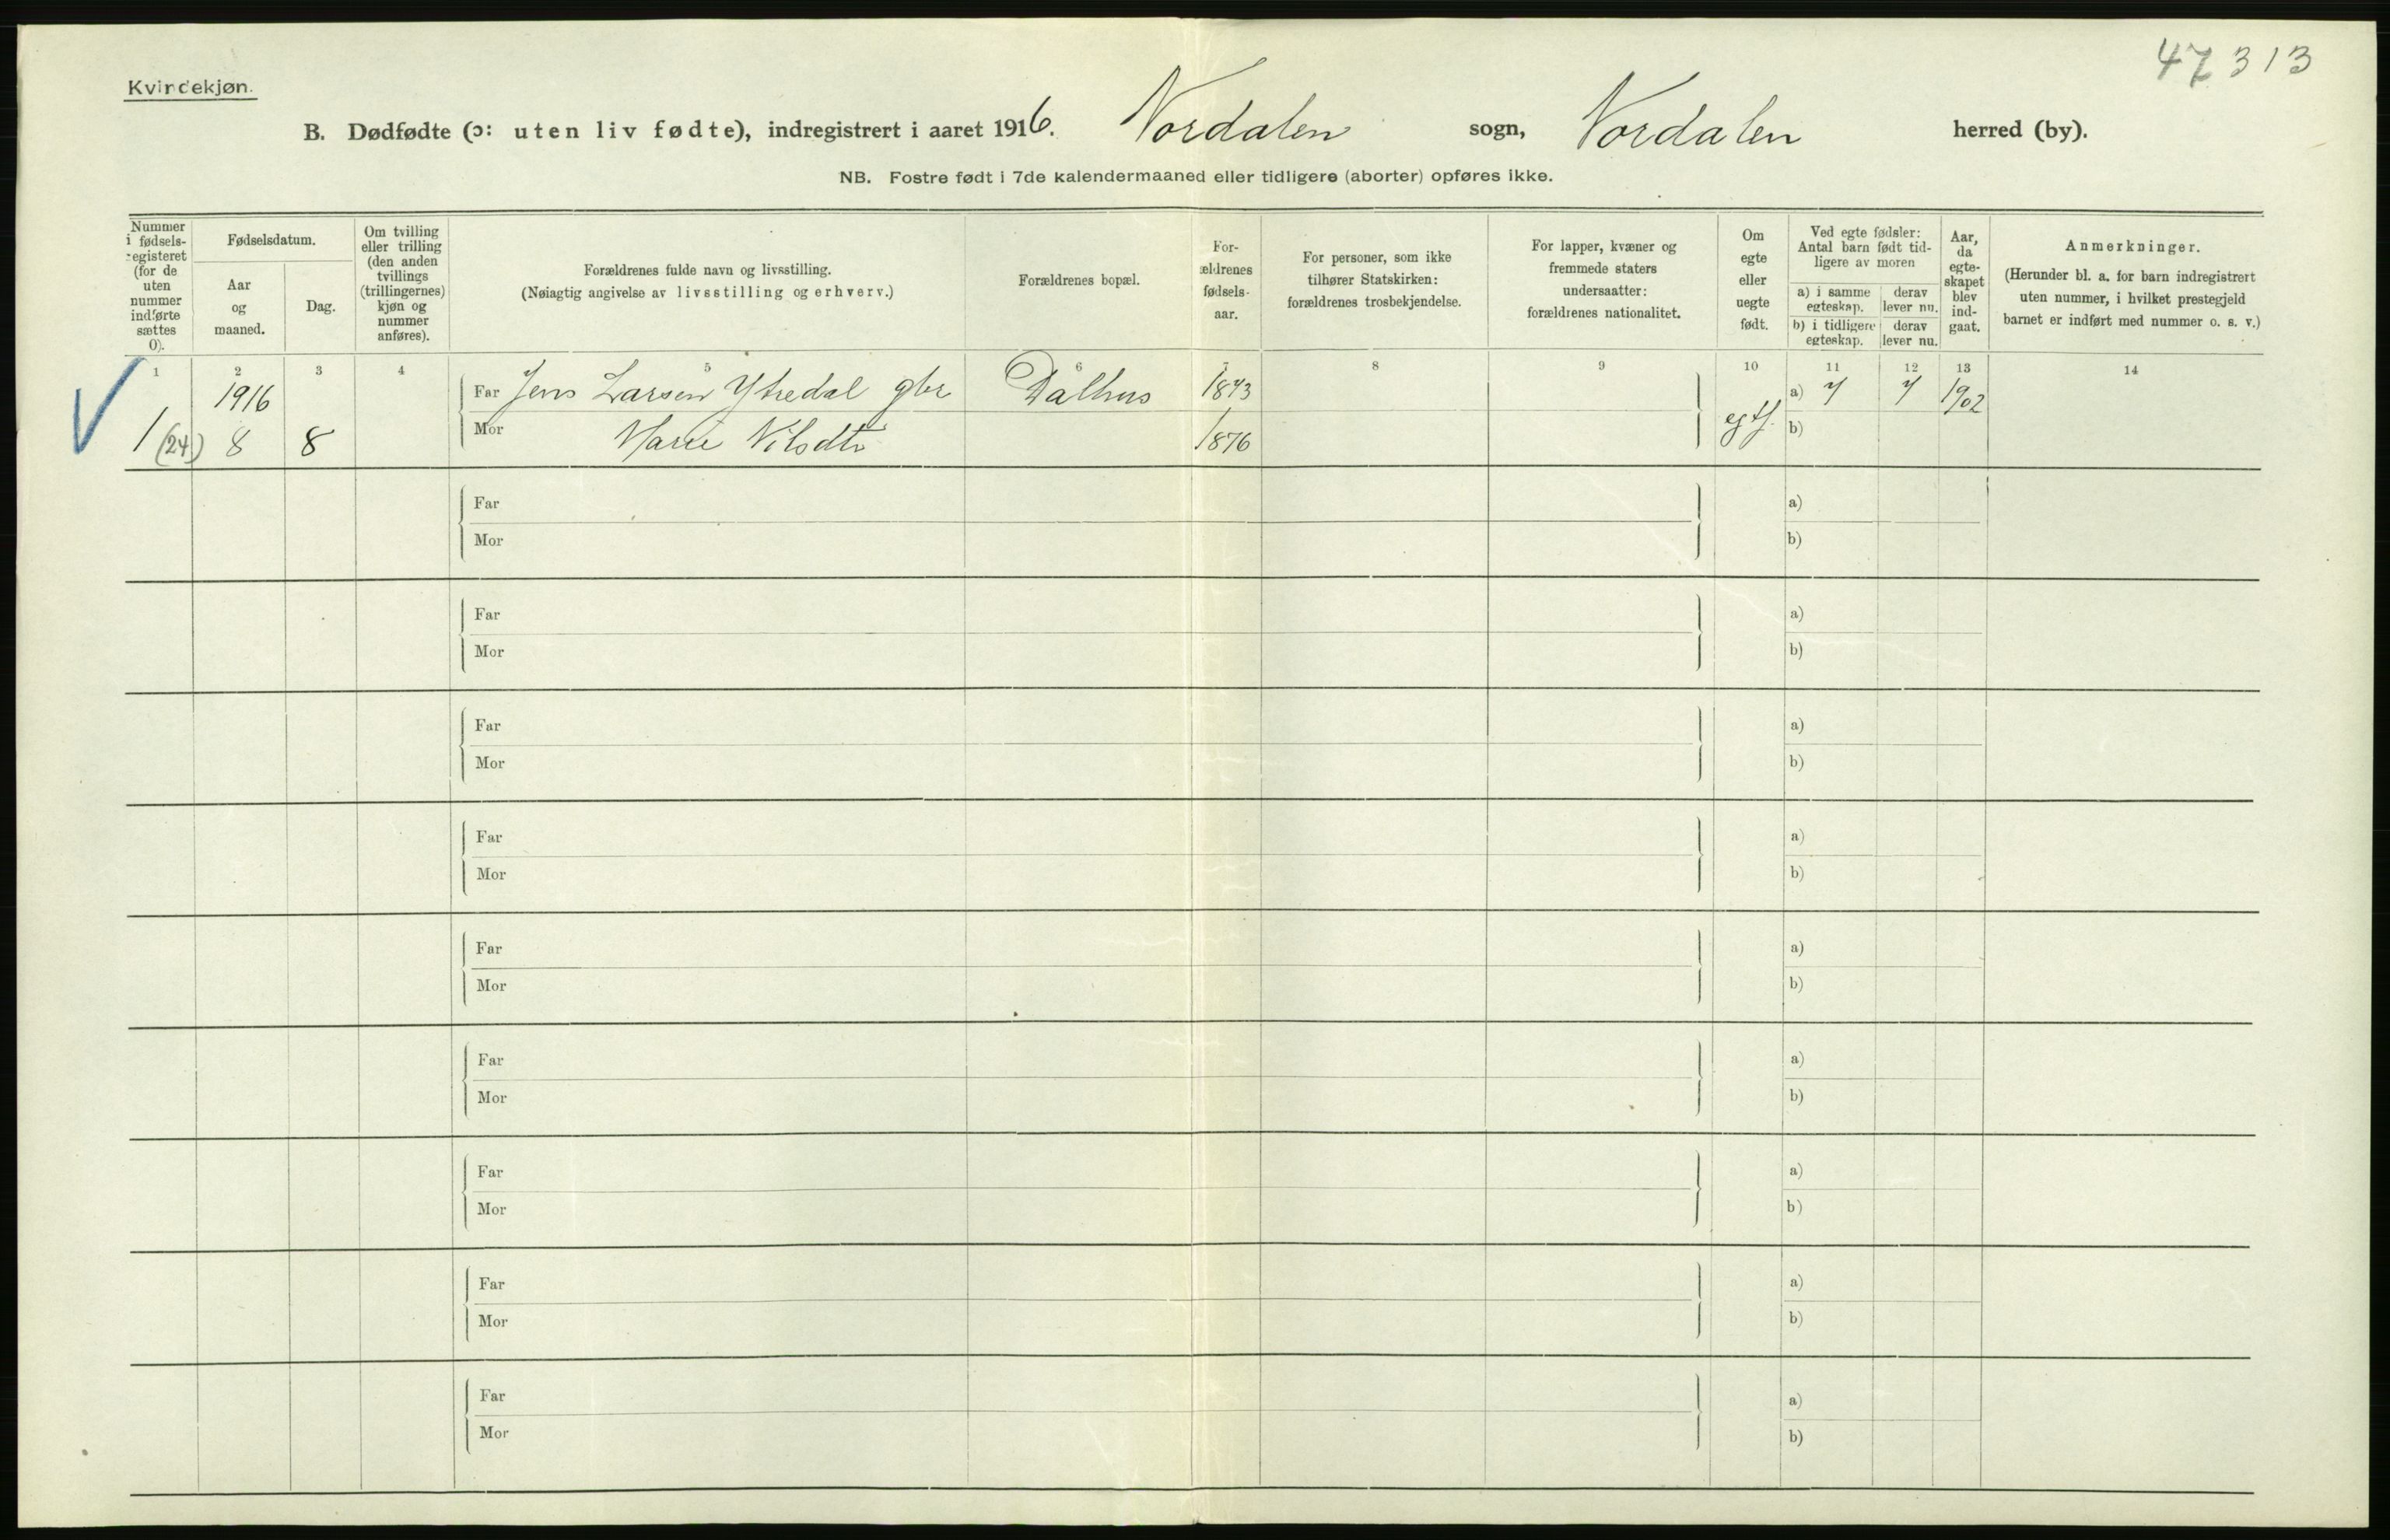 47313
Kvindekjøn.
B. Dødfødte (ɔ: uten liv fødte), indregistrert i aaret 1916. Nordalen sogn, Nordalen herred (by).
NB. Fostre født i 7de kalendermaaned eller tidligere (aborter) opføres ikke.
Nummer
i fødsels-
registeret
(for de
uten
nummer
indførte
sættes
0).
Fødselsdatum.
Aar
og
maaned.
Dag.
Om tvilling
eller trilling
(den anden
tvillings
(trillingernes)
kjøn og
nummer
anføres).
Forældrenes fulde navn og livsstilling.
(Nøiagtig angivelse av livsstilling og erhverv.)
Forældrenes bopæl.
For-
ældrenes
fødsels-
aar.
For personer, som ikke
tilhører Statskirken:
forældrenes trosbekjendelse.
For lapper, kvæner og
fremmede staters
undersaatter:
forældrenes nationalitet.
Om
egte
eller
uegte
født.
Ved egte fødsler:
Antal barn født tid-
ligere av moren
a) i samme
egteskap.
derav
lever nu.
b) i tidligere
egteskap.
derav
lever nu.
Aar,
da
egte-
skapet
blev
ind-
gaat.
Anmerkninger.
(Herunder bl. a. for barn indregistrert
uten nummer, i hvilket prestegjeld
barnet er indført med nummer o. s. v.)
1 2 3 4 5 6 7 8 9 10 11 12 13 14
1916 Far Jens Larsen Ytredal gbr Dalhus 1873 a) 7 7 1902
1 (24) 8 8 Mor Marie Nilsdtr 1876 egtf. b)
Far a)
Mor b)
Far a)
Mor b)
Far a)
Mor b)
Far a)
Mor b)
Far a)
Mor b)
Far a)
Mor b)
Far a)
Mor b)
Far a)
Mor b)
Far a)
Mor b)